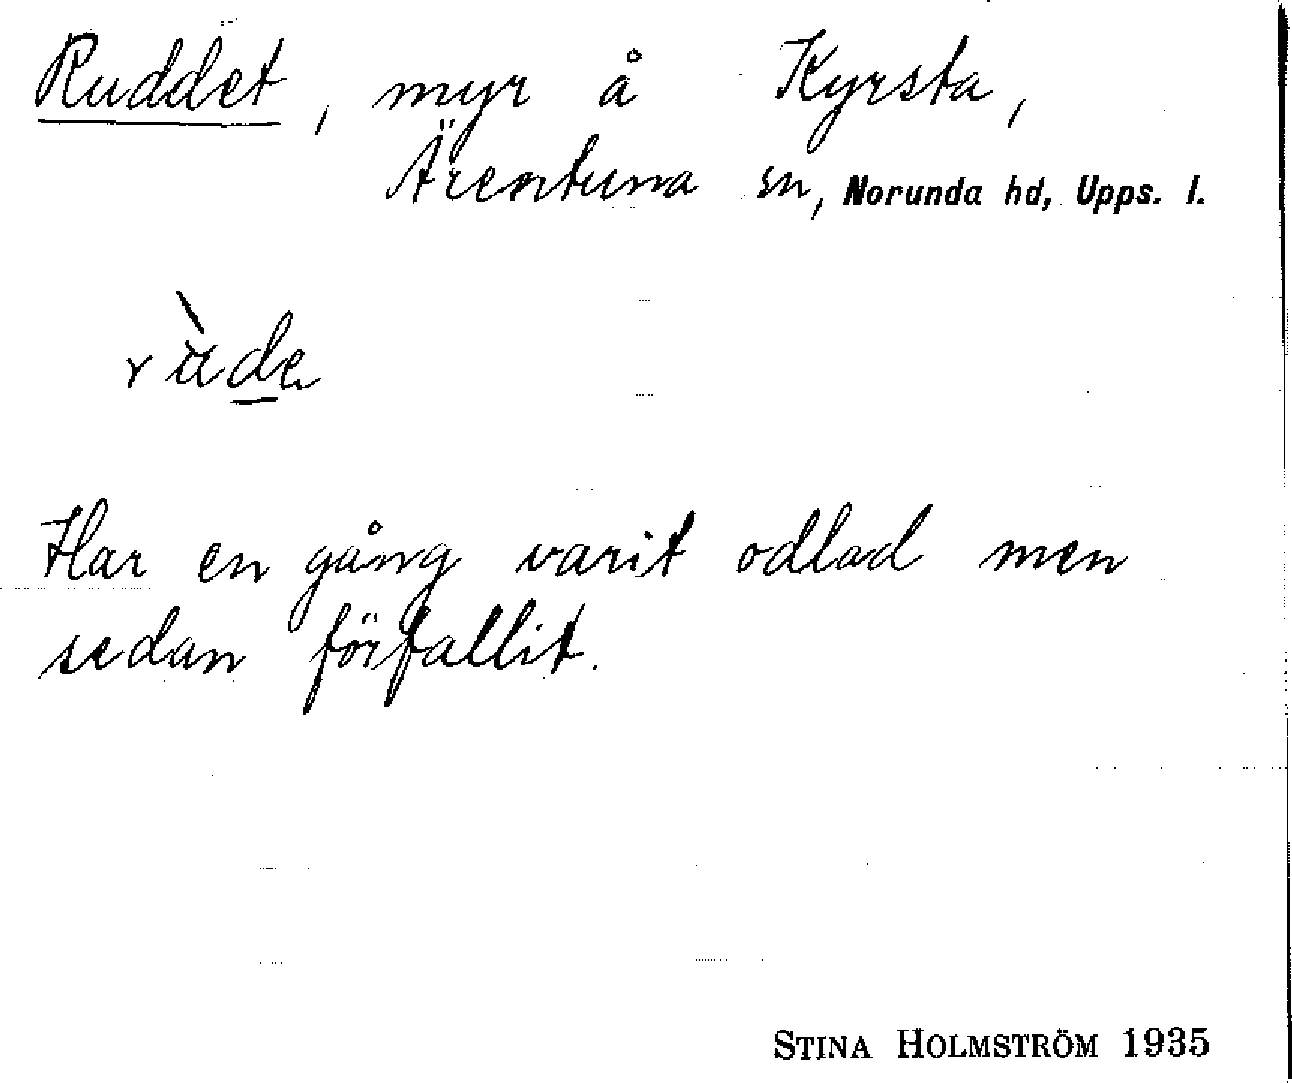 Ruddet, myr å Kyrsta,
Ärentuna sn, Norunda hd, Upps. l.
rùde
Har en gång varit odlad men
sedan förfallit.
STINA HOLMSTRÖM 1935